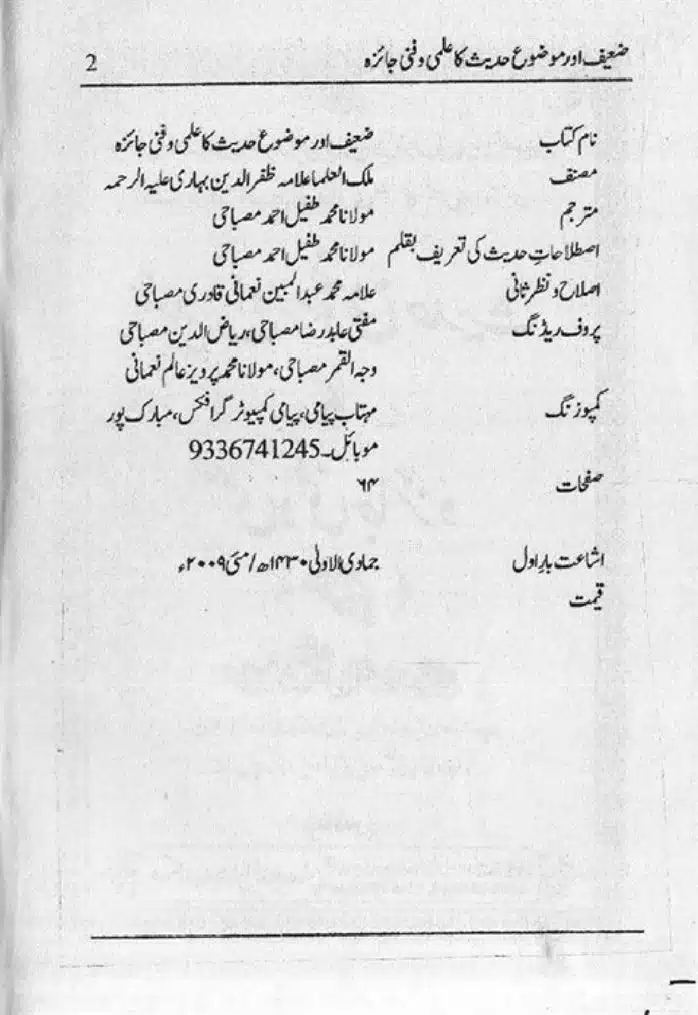 ضعیف اور موضوع حدیث کا علمی و فنی جائزہ 2
نام کتاب ضعیف اور موضوع حدیث کا علمی و فنی جائزہ
مصنف ملک العلما علامہ ظفر الدین بہاری علیہ الرحمہ
مترجم مولانا محمد طفیل احمد مصباحی
اصطلاحاتِ حدیث کی تعریف بقلم مولانا محمد طفیل احمد مصباحی
اصلاح و نظر ثانی علامہ محمد عبد المبین نعمانی قادری مصباحی
پروف ریڈنگ مفتی عابد رضا مصباحی، ریاض الدین مصباحی
وجہ القمر مصباحی، مولانا محمد پرویز عالم نعمانی
کمپوزنگ مہتاب پیامی، پیامی کمپیوٹر گرافکس، مبارک پور
موبائل۔ 9336741245
صفحات ۶۴
اشاعت بار اول جمادی الاولیٰ ۱۴۳۰ھ/مئی ۲۰۰۹ء
قیمت